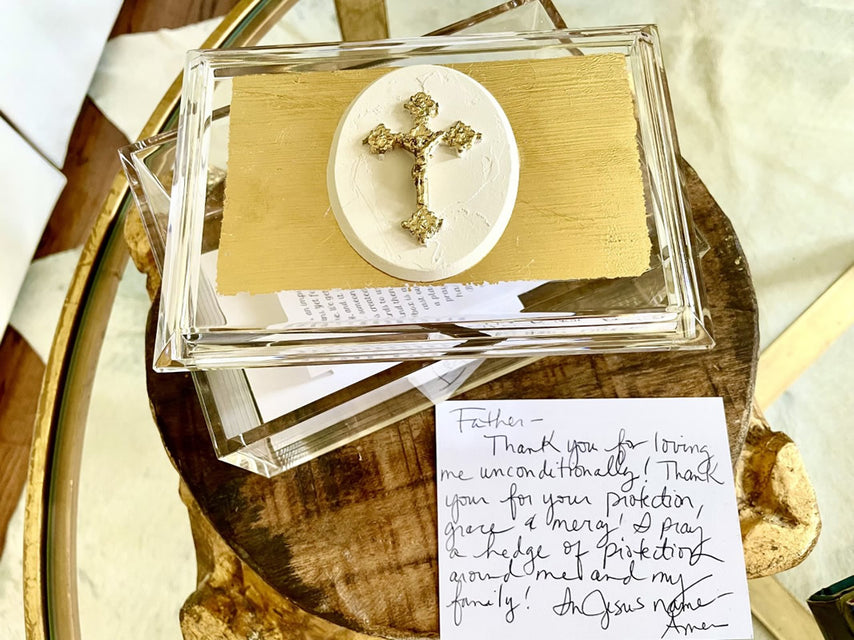 Father -
Thank you for loving
me unconditionally! Thank
your for your protection,
grace & mercy! I pray
a hedge of protection
around me and my
family! In Jesus name -
Amen